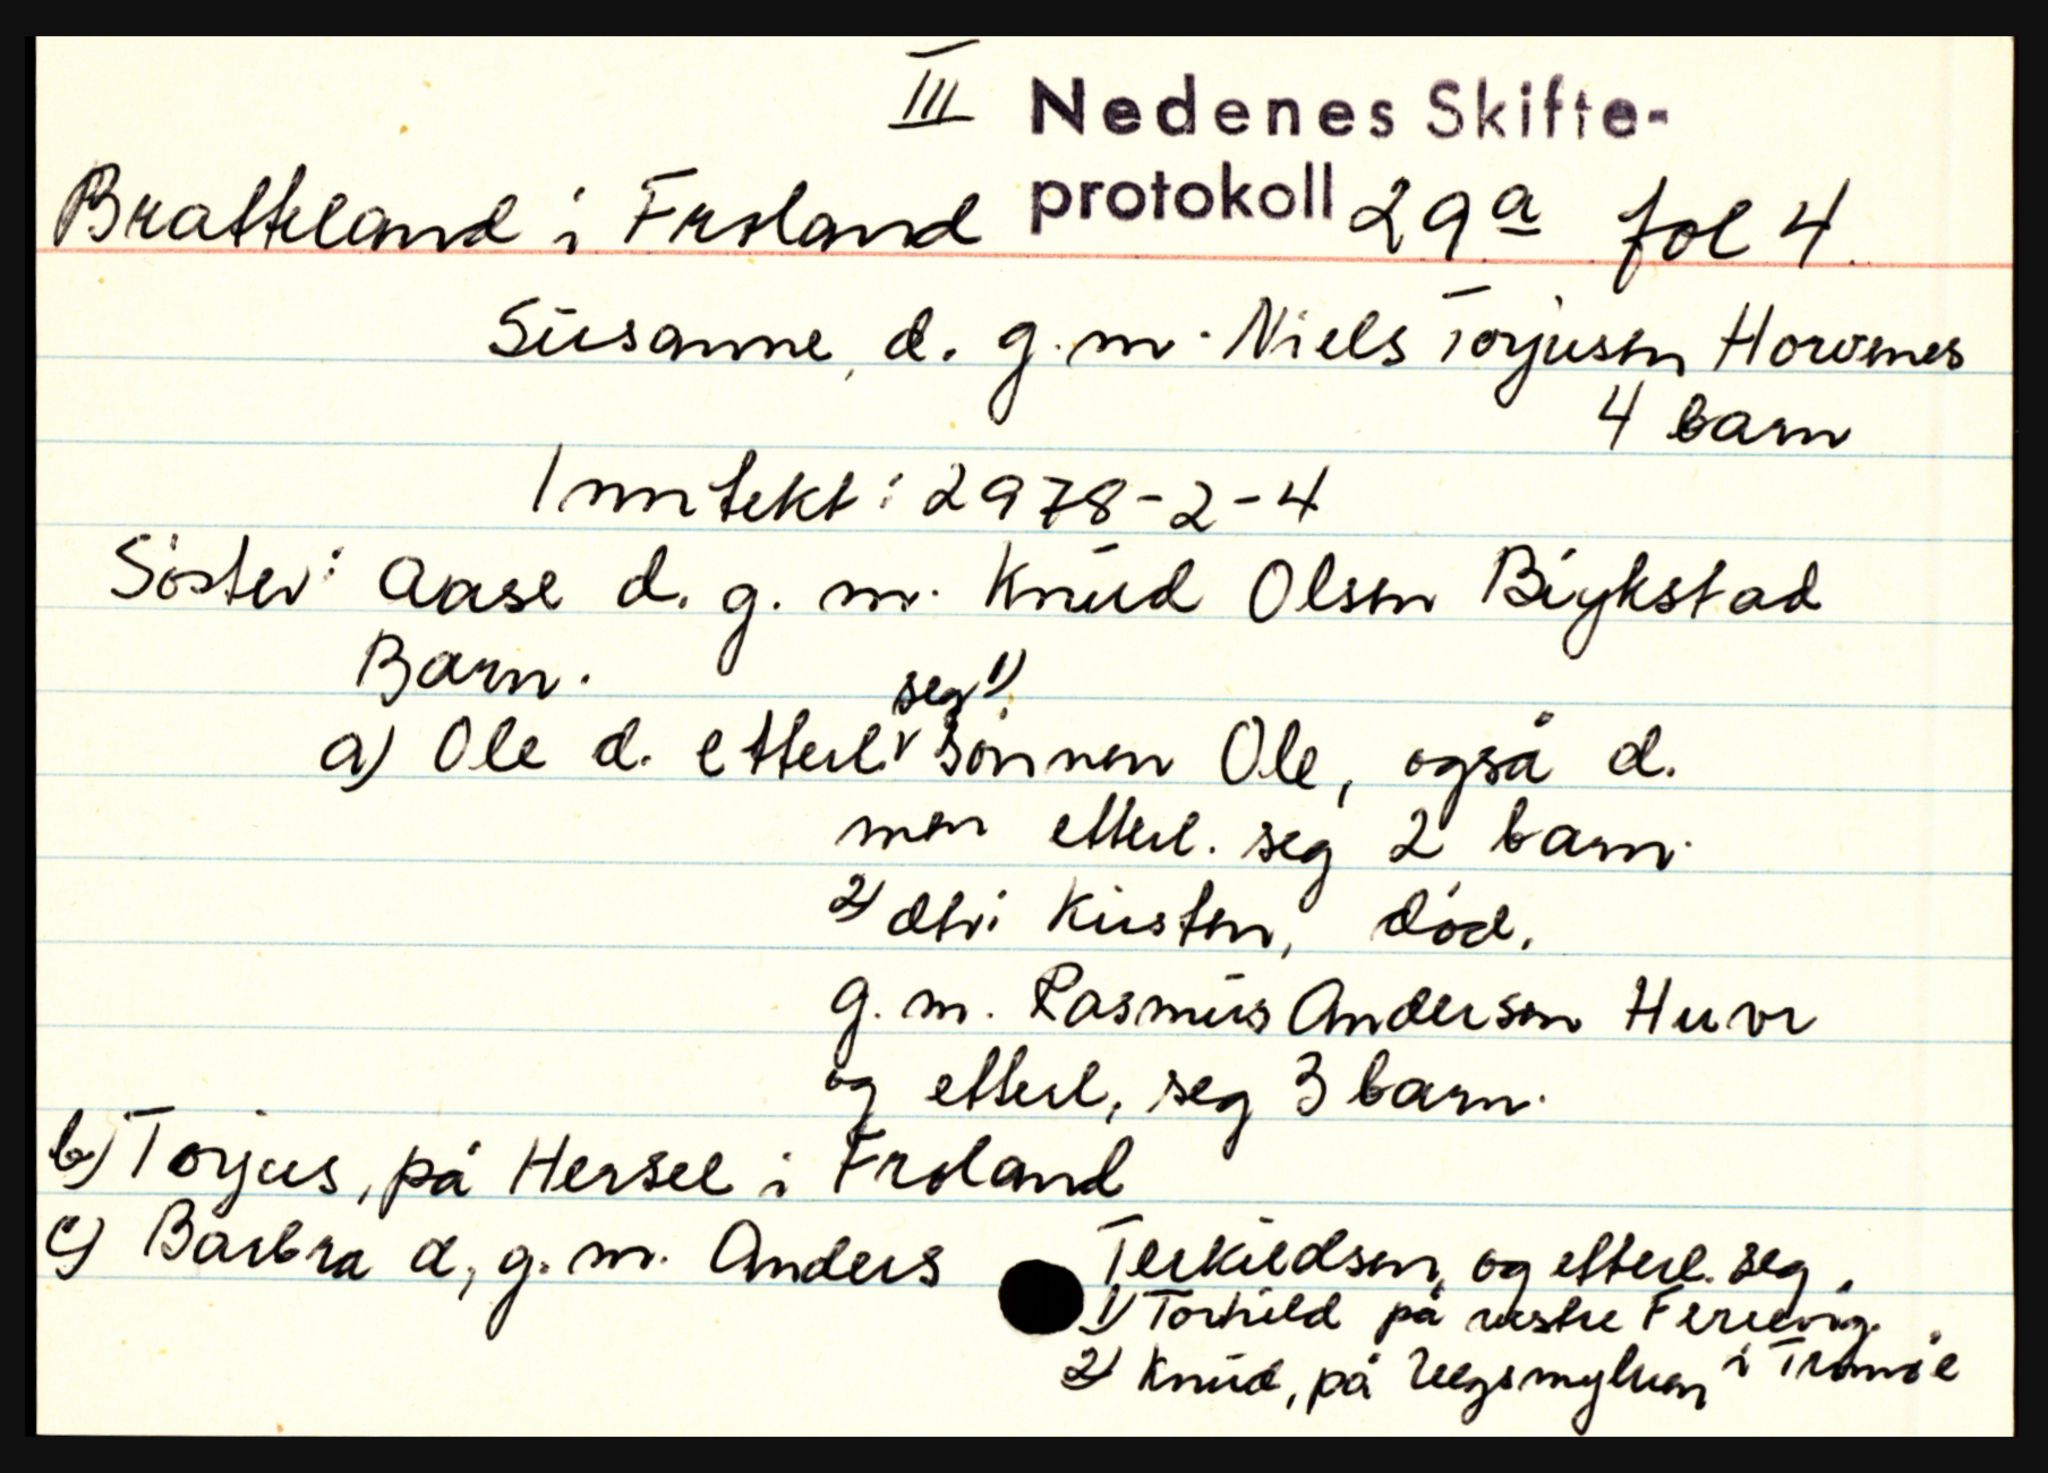 III Nedenes Skifte-
Bratteland i Froland protokoll 29a fol 4.
Susanne, d. g.m. Niels Torjusen Horvenes
4 barn
Inntekt: 2978-2-4
Søster: Aase d. g. m. Knud Olsen Bøykstad
Barn.
seg 1)
a) Ole d. etterl. v sønnen Ole, også d.
men etterl. seg 2 barn.
2) dtr. Kirsten, død.
g. m. Rasmus Andersen
og etterl. seg 3 barn.
b) Torjus, på Hersel i Froland
c) Barbra d, g. m. Anders Terkildsen, og etterl. seg,
1) Torhild på vestre Ferrevig.
2) Knud, på i Tromøe